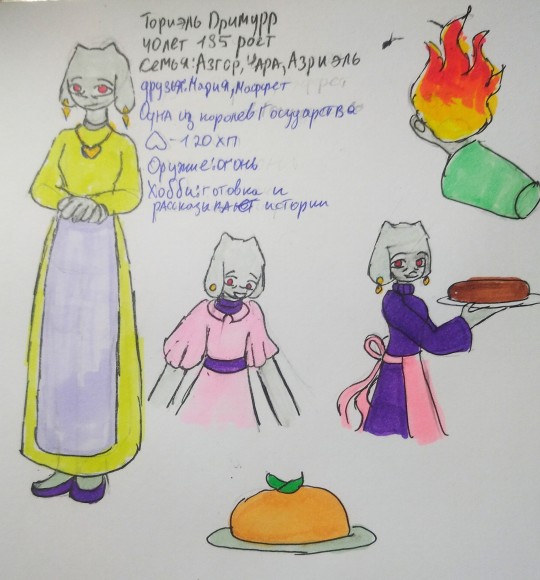 Ториэль Дримурр
40 лет 185 рост
Семья: Азгор, Чара, Азриэль
друзья: Мадия, Маффет
Одна из королев Государства
♡-120 ХП
Оружие: огонь
Хобби: готовка и
рассказывает истории